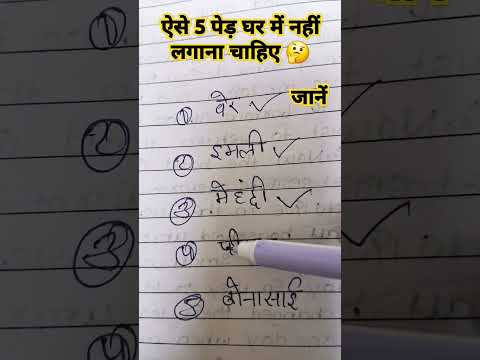 ऐसे 5 पेड़ घर में नहीं
लगाना चाहिए 🤔
जानें
① वेर ✓
② इमली ✓
③ मेहंदी ✓
④
⑤ बोनासाई